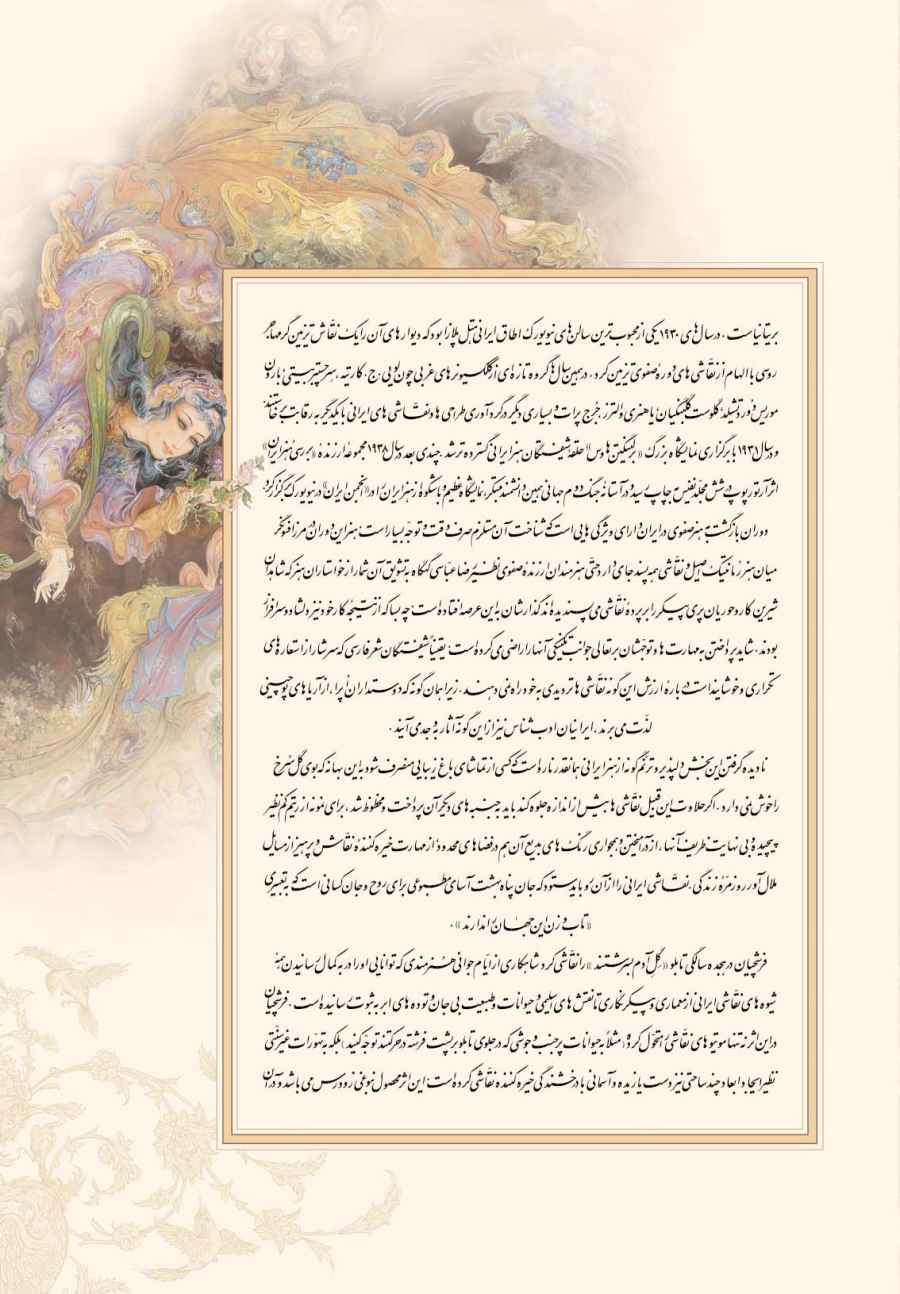 بریتانیاست. در سال‌های ۱۹۳۰ یکی از محبوب‌ترین سالن‌های نیویورک اطاق ایرانی هتل پلازا بود که دیوارهای آن را یک نقّاش تزیین‌گر مهاجر
روسی با الهام از نقّاشی‌های دورهٔ صفوی تزیین کرد. در همین سال‌ها گروه تازه‌ای از کلکسیونرهای غربی چون لویی. ج. کارتیه، سر چستر بیتی، بارون
موریس دو روتشیلد، گلوست گلبنکیان یا هنری والترز، جُرج پرات و بسیاری دیگر در گردآوری طراحی‌ها و نقّاشی‌های ایرانی با یکدیگر به رقابت برخاستند
و در سال ۱۹۳۱ با برگزاری نمایشگاه بزرگ «برلینگتن هاوس» حلقهٔ شیفتگان هنر ایرانی گسترده‌تر شد. چندی بعد در سال ۱۹۳۸ مجموعهٔ ارزندهٔ «بررسی هنر ایران»
اثر آرتور پوپ در شش مجلّد نفیس به چاپ رسید و در آستانهٔ جنگ دوم جهانی همین دانشمند مبتکر، نمایشگاه عظیم و باشکوه از هنر ایران را در «انجمن ایران» در نیویورک برگزار کرد.
دوران بازگشت به هنر صفوی در ایران دارای ویژگی‌هایی است که شناخت آن مستلزم صرف وقت و توجّه بسیار است: هنر این دوران در مرز افسونگر
میان هنر رمانتیک اصیل و نقّاشی همه‌پسند جای دارد حتّی هنرمندان ارزندهٔ صفوی نظیر رضا عبّاسی که گاه به تشویق آن شمار از خواستاران هنر که شاهدان
شیرین‌کار و حوریان پری‌پیکر را بر پردهٔ نقّاشی می‌پسندیده‌اند گذارشان به این عرصه افتاده است چه بسا که از نتیجهٔ کار خود نیز دلشاد و سرافراز
بودند. شاید پرداختن به مهارت‌ها و توجّهشان بر تعالی جوانب تکنیکی آنها را راضی می‌کرده است: یقیناً شیفتگان شعر فارسی که سرشار از استعاره‌های
تکراری و خوشایند است دربارهٔ ارزش این گونه نقّاشی‌ها تردیدی به خود راه نمی‌دهند. زیرا همان گونه که دوستداران اُپرا، از آریاهای پوچینی
لذّت می‌برند، ایرانیان ادب‌شناس نیز از این گونه آثار به وجد می‌آیند.
نادیده گرفتن این بخش دلپذیر و ترنّم‌گونه از هنر ایرانی همانقدر نارواست که کسی از تماشای باغ زیبایی منصرف شود به این بهانه که بوی گل سُرخ
را خوش نمی‌دارد. اگر حلاوت این قبیل نقّاشی‌ها بیش از اندازه جلوه کند باید به جنبه‌های دیگر آن پرداخت و محظوظ شد، برای نمونه از ریتم کم‌نظیر
پیچیده و بی‌نهایت ظریف آنها، از درآمیختن و همجواری رنگ‌های بدیع آن هم در فضاهای محدود، از مهارت خیره‌کنندهٔ نقّاش و پرهیز از مسایل
ملال‌آور روزمرّهٔ زندگی. نقّاشی ایرانی را از آن رو باید ستود که جان پناه بهشت‌آسای مطبوعی برای روح و جان کسانی است که به تعبیری
«تاب و زن این جهان را ندارند».
فرشچیان در هجده سالگی تابلو «گِلِ آدم بسرشتند» را نقّاشی کرد شاهکاری از ایّام جوانی هنرمندی که توانایی او را در به کمال رسانیدن همهٔ
شیوه‌های نقّاشی ایرانی از معماری و پیکرنگاری تا نقش‌های اسلیمی و حیوانات و طبیعت بی‌جان و توده‌های ابر به ثبوت رسانیده است. فرشچیان
در این اثر نه تنها موتیوهای نقّاشی را متحوّل کرده (مثلاً به حیوانات پر جنب و جوشی که در جلوی تابلو بر پشت فرشته در حرکتند توجّه کنید) بلکه به تهوّرات غیرسنّتی
نظیر ایجاد ابعاد چند ساحتی نیز دست یازیده و آسمانی با درخشندگی خیره‌کننده نقّاشی کرده است: این اثر محصول نبوغی زودرس می‌باشد و در آن